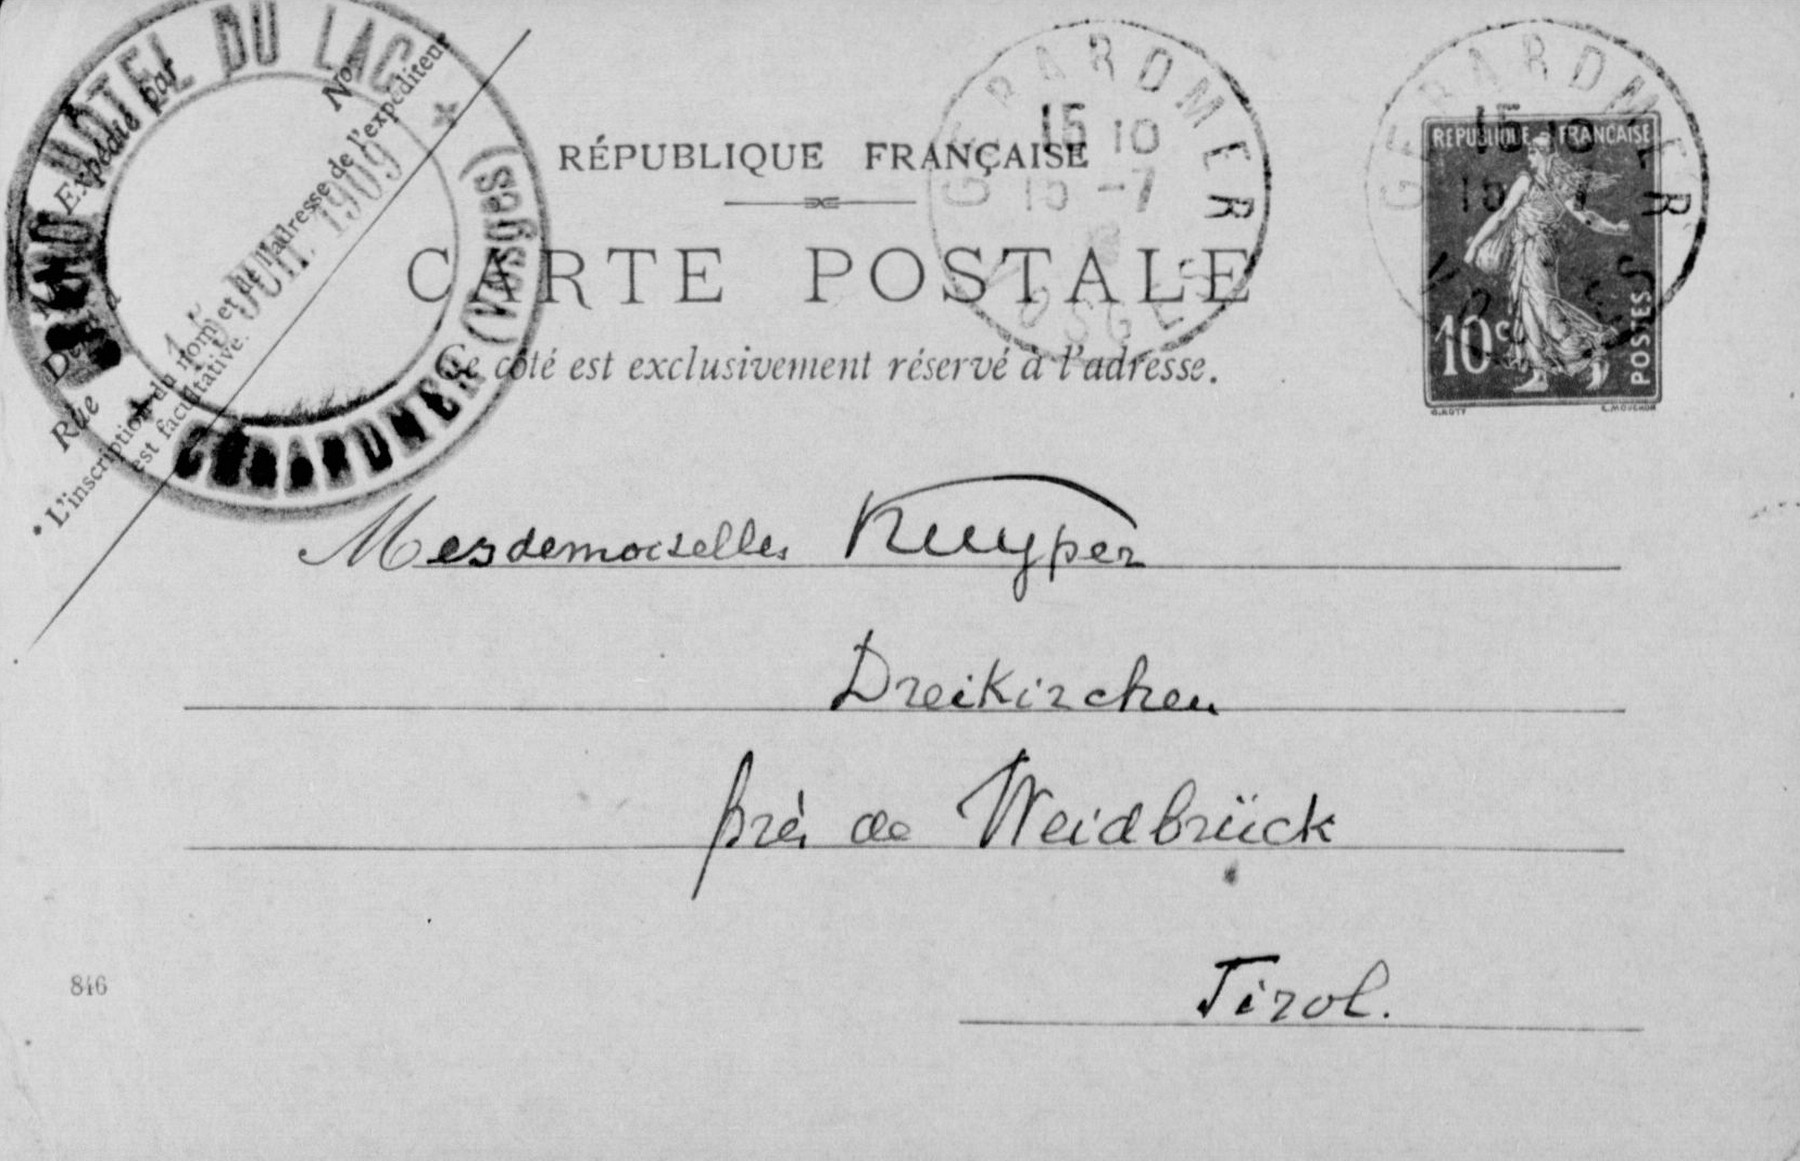 GRAND HOTEL DU LAC
GÉRARDMER (Vosges)
15 JUIL 1909
Expédié par
Rue
No
* L'inscription du nom et de l'adresse de l'expéditeur
est facultative.
RÉPUBLIQUE FRANÇAISE
CARTE POSTALE
Ce côté est exclusivement réservé à l'adresse.
GERARDMER
15 10
15 -7
VOSGES
GERARDMER
15 10
15 7
VOSGES
REPUBLIQUE FRANÇAISE
10c
POSTES
O.ROTY
E.MOUCHON
Mesdemoiselles Kuyper
Dreikirchen
près de Weidbrück
Tirol.
846